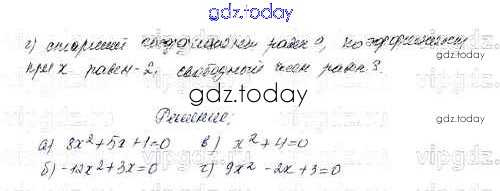 gdz.today
г) старший коэффициент равен 9, коэффициент
при x равен -2, свободный член равен 3.
gdz.today
Решение:
а) 8x²+5x+1=0 в) x²+4=0
б) -12x²+3x=0 г) 9x²-2x+3=0
gdz.today